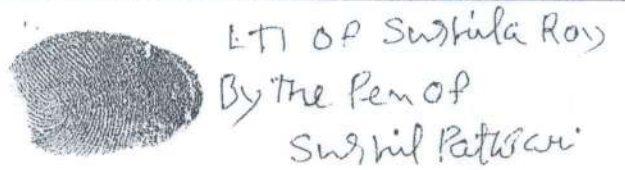 LTI OF Sushila Roy
By The Pen of
Sushil Patwari